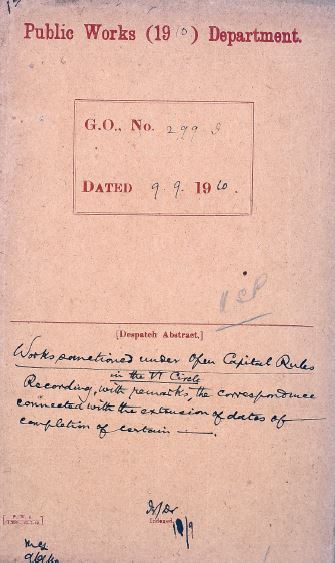 Public Works (1910) Department.
G.O., No. 299 I
DATED 9. 9. 1910.
[Despatch Abstract.]
Works sanctioned under Open Capital Rules
in the VI Circle
Recording, with remarks, the correspondence
connected with the extension of dates of
completion of certain —.
Indexed